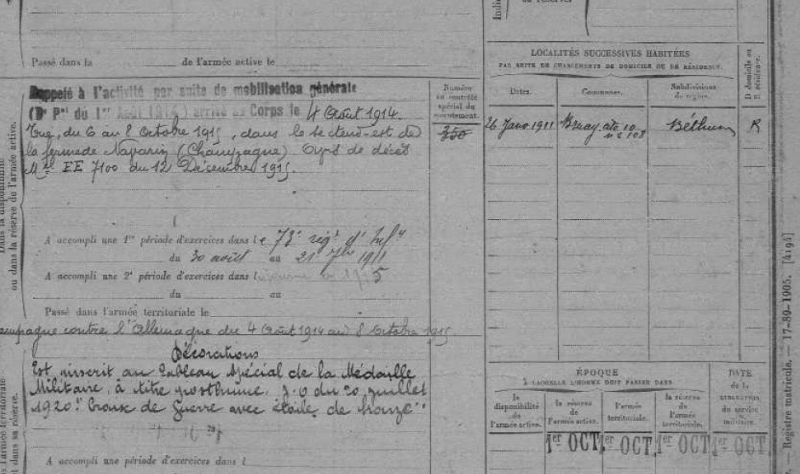 Passé dans la de l'armée active le
Rappelé à l'activité par suite de mobilisation générale
(Dt Pal du 1er Août 1914) arrivé au Corps le 4 Août 1914.
Tué, du 6 au 8 Octobre 1915, dans le secteur est de
la ferme de Navarin (Champagne) Avis de décès
Mtl EE 7100 du 12 Décembre 1915.
A accompli une 1re période d'exercices dans le 73e régt d'Infie
du 30 août au 21 7bre 1911
A accompli une 2e période d'exercices dans l
du au
Passé dans l'armée territoriale le
Campagne contre l'Allemagne du 4 Août 1914 au 8 Octobre 1915
Décorations
Est inscrit au Tableau Spécial de la Médaille
Militaire à titre posthume J.O du 20 juillet
1920 "Croix de Guerre avec étoile de bronze"
A accompli une période d'exercices dans l
Dans la disponibilité
ou dans la réserve de l'armée active.
l'armée territoriale
et dans sa réserve.
Numéro
au contrôle
spécial du
recrutement.
350
LOCALITÉS SUCCESSIVES HABITÉES
PAR SUITE DE CHANGEMENTS DE DOMICILE OU DE RÉSIDENCE.
Dates.
Communes.
Subdivisions
de région.
D domicile ou
R résidence.
26 Janv 1911
Bruay
Béthune
R
ÉPOQUE
À LAQUELLE L'HOMME DOIT PASSER DANS
la
disponibilité
de l'armée active.
la réserve
de
l'armée active.
l'armée
territoriale.
la réserve
de
l'armée
territoriale.
DATE
de la
LIBÉRATION
du service
militaire.
1er OCT
1er OCT
1er OCT
1er OCT
— Registre matricule. — 17-89-1905. [4194]